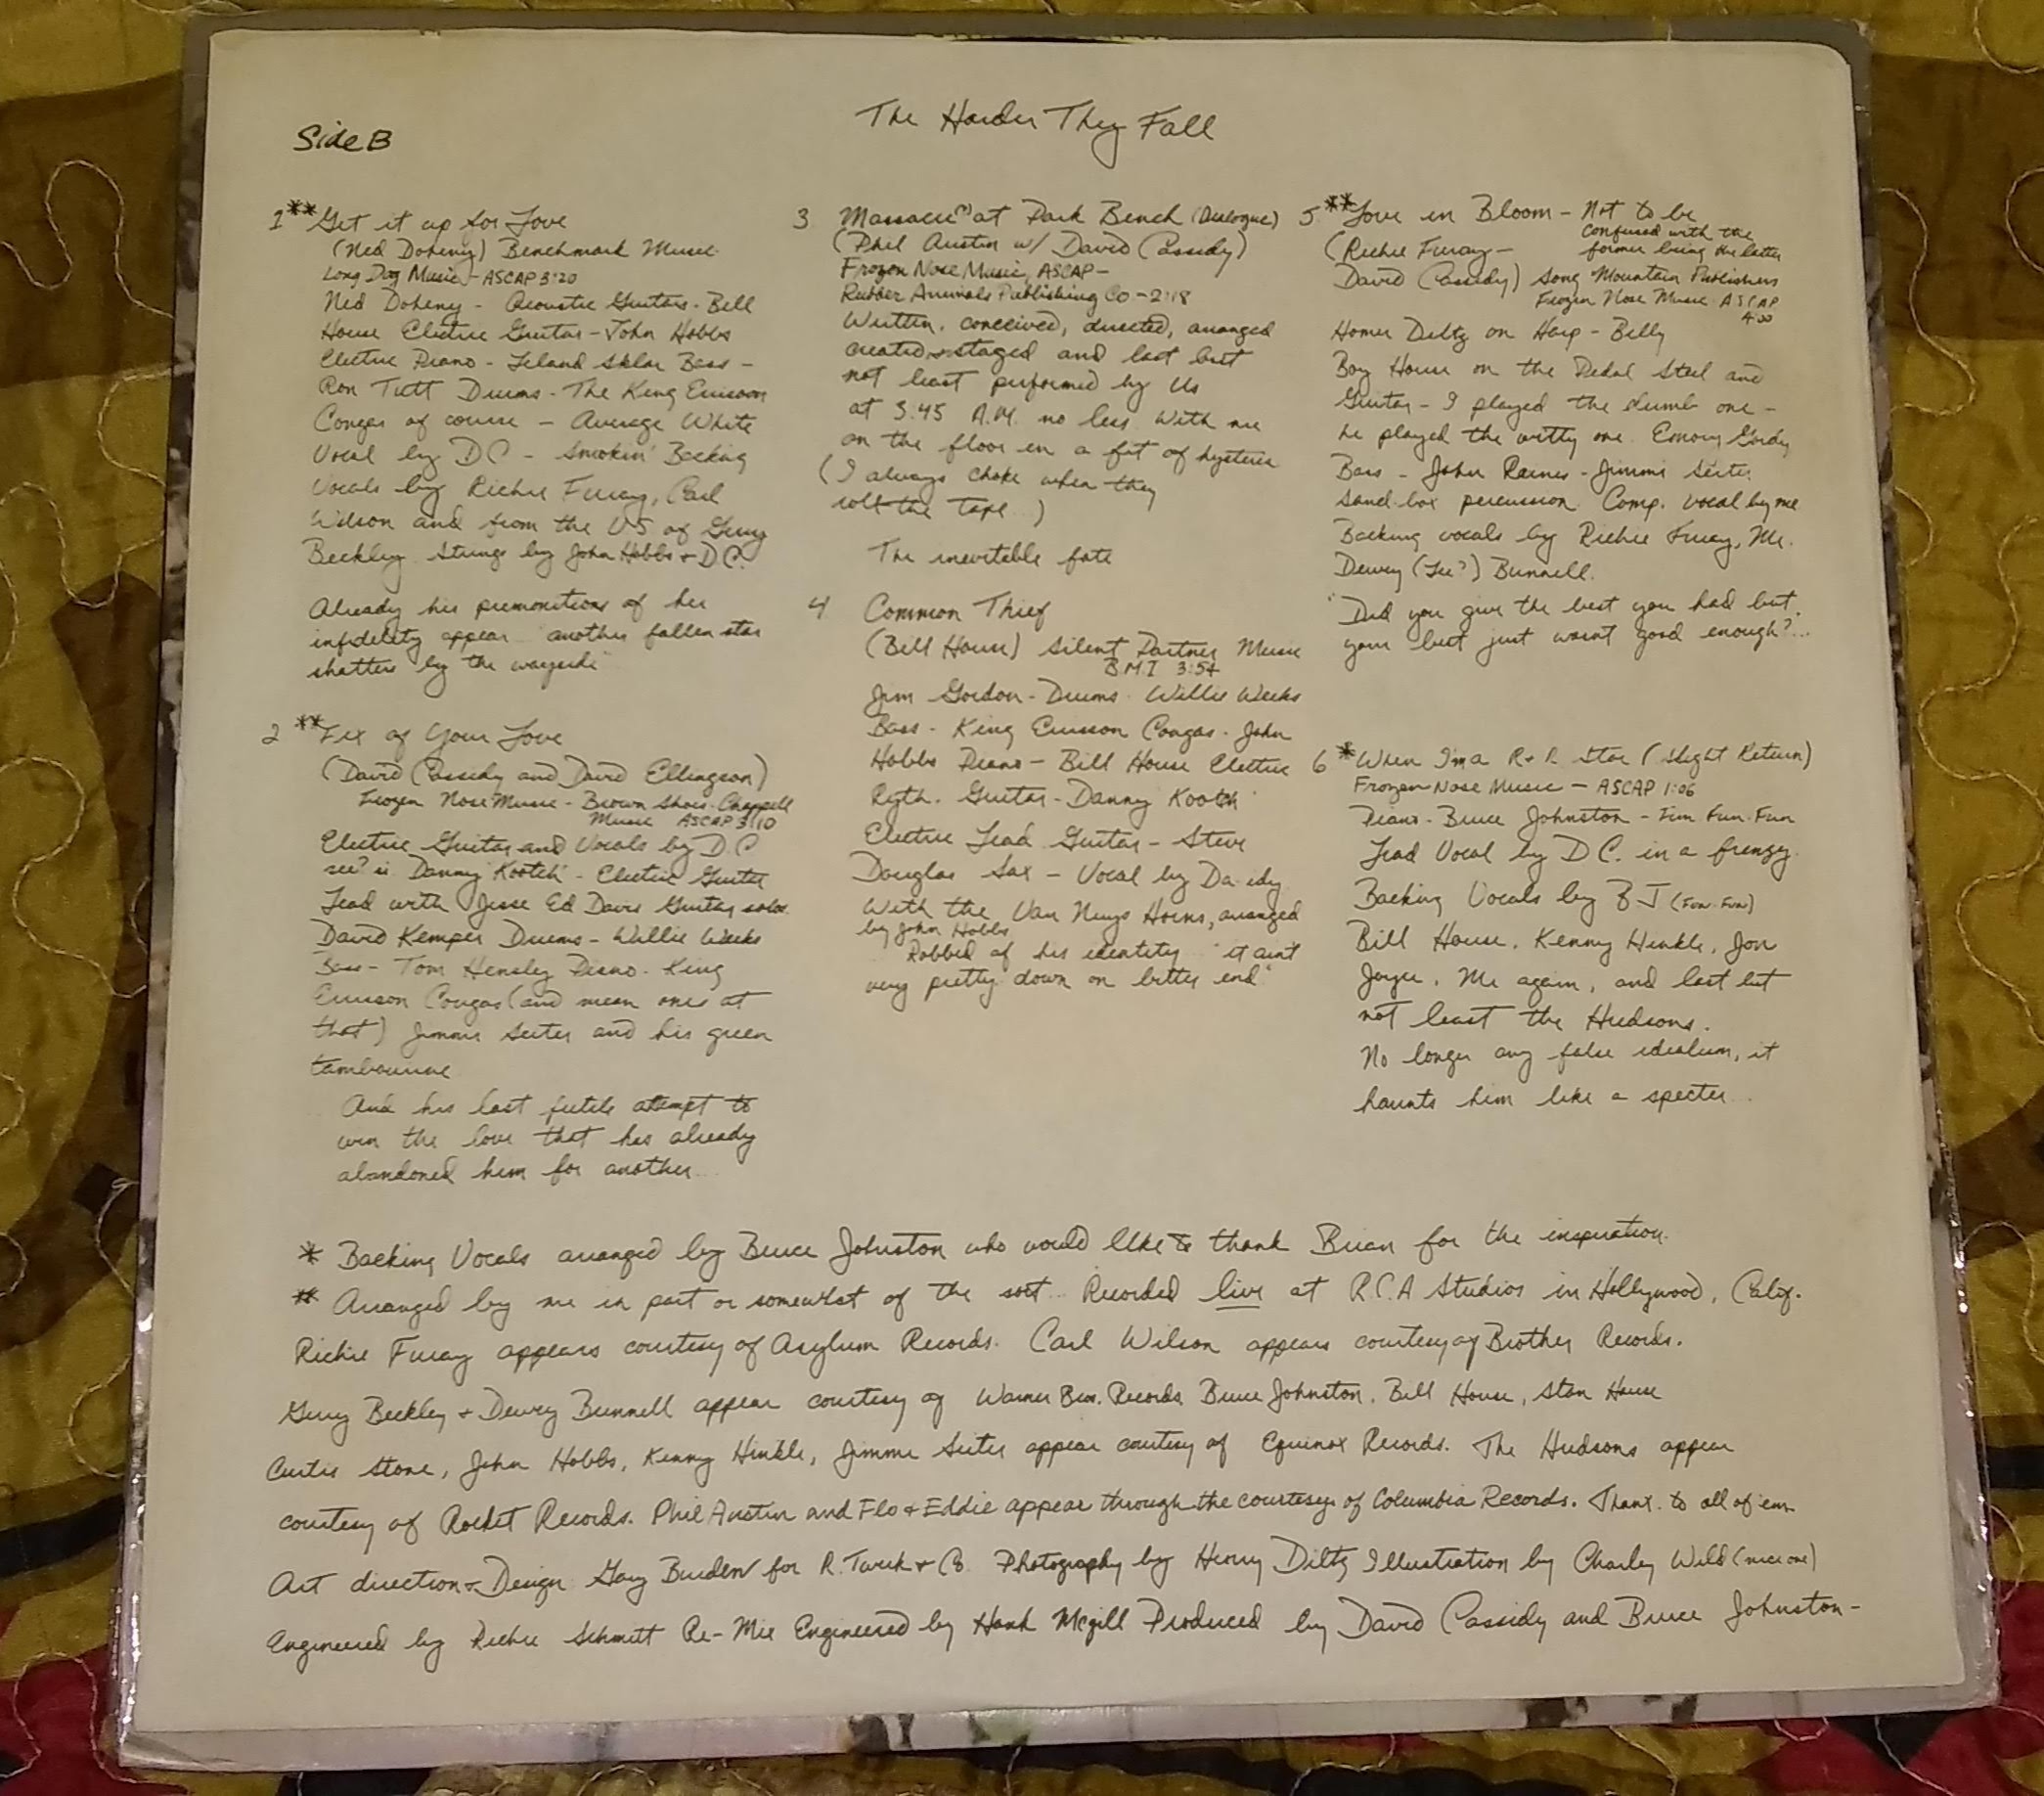 The Harder They Fall
Side B
1 **Get it up for Love
(Ned Doheny) Benchmark Music
Long Dog Music - ASCAP 3:20
Ned Doheny - Acoustic Guitars - Bill
House Electric Guitar - John Hobbs
Electric Piano - Leland Sklar Bass -
Ron Tutt Drums - The King Errisson
Congas of course - Average White
Vocal by D C - Smokin' Backing
Vocals by Richie Furay, Carl
Wilson and from the US of Gerry
Beckley Strings by John Hobbs + D.C.
Already his premonitions of her
infidelity appear "another fallen star
shatters by the wayside"
2 **Fix of Your Love
(David Cassidy and David Ellingson)
Frozen Nose Music - Brown Shoes - Chappell
Music ASCAP 3:10
Electric Guitar and Vocals by D C
see? is Danny 'Kootch' - Electric Guitar
Lead with Jesse Ed Davis Guitar solos
David Kemper Drums - Willie Weeks
Bass - Tom Hensley Piano - King
Errisson Congas (and mean ones at
that) Jimmie Seiter and his green
tambourine
And his last futile attempt to
win the love that has already
abandoned him for another...
3 Massacre at Park Bench (Dialogue)
(Phil Austin w/ David Cassidy)
Frozen Nose Music, ASCAP -
Rubber Animals Publishing Co - 2:18
Written, conceived, directed, arranged
created, staged and last but
not least performed by Us
at 3:45 A.M. no less. With me
on the floor in a fit of hysteria
(I always choke when they
roll the tape...)
The inevitable fate
4 Common Thief
(Bill House) Silent Partner Music
B.M.I 3:54
Jim Gordon - Drums - Willie Weeks
Bass - King Errisson Congas - John
Hobbs Piano - Bill House Electric
Ryth. Guitar - Danny 'Kootch'
Electric Lead Guitar - Steve
Douglas Sax - Vocal by
With the Van Nuys Horns, arranged
by John Hobbs
Robbed of his identity "it aint
very pretty down on bitter end"
5 **Love in Bloom - Not to be
confused with the
former being the latter
(Richie Furay -
David Cassidy) Song Mountain Publishers
Frozen Nose Music ASCAP
4:00
Homer Diltz on Harp - Billy
Boy House on the Pedal Steel and
Guitar - I played the dumb one -
he played the witty one. Emory Gordy
Bass - John Raines - Jimmie Seiter
sand-box percussion Comp. Vocal by me
Backing vocals by Richie Furay, Me.
Dewey (Lee?) Bunnell.
"Did you give the best you had but,
your best just wasn't good enough?"...
6 *When I'm a R + R Star (Slight Return)
Frozen Nose Music - ASCAP 1:06
Piano - Bruce Johnston - Fun Fun Fun
Lead Vocal by D C. in a frenzy.
Backing Vocals by B J (Fun Fun)
Bill House, Kenny Hinkle, Jon
Joyce, Me again, and last but
not least the Hudsons.
No longer any false idealism, it
haunts him like a specter...
* Backing Vocals arranged by Bruce Johnston who would like to thank Brian for the inspiration.
** Arranged by me in part or somewhat of the sort... Recorded live at R.C.A Studios in Hollywood, Calif.
Richie Furay appears courtesy of Asylum Records. Carl Wilson appears courtesy of Brother Records.
Gerry Beckley + Dewey Bunnell appear courtesy of Warner Bros. Records. Bruce Johnston, Bill House, Stan House
Curtis Stone, John Hobbs, Kenny Hinkle, Jimmie Seiter appear courtesy of Equinox Records. The Hudsons appear
courtesy of Rocket Records. Phil Austin and Flo + Eddie appear through the courtesy of Columbia Records. Thanx to all of 'em
Art direction + Design Gary Burden for R. Twerk + Co. Photography by Henry Diltz Illustration by Charley Wild (nice one)
Engineered by Richie Schmitt Re-Mix Engineered by Hank Mcgill Produced by David Cassidy and Bruce Johnston -